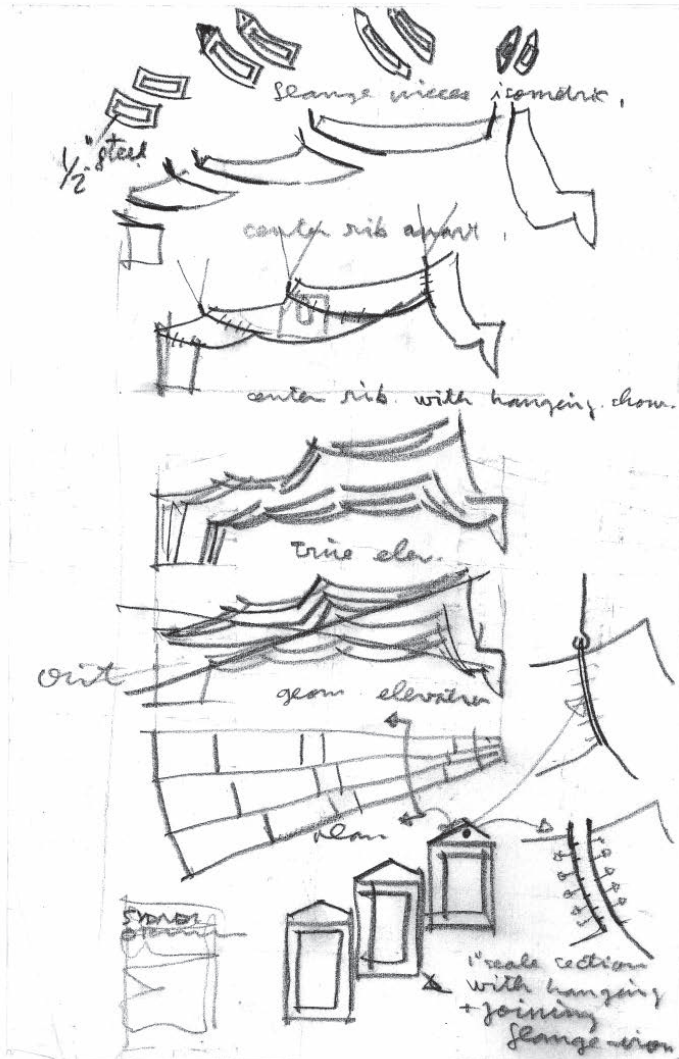 flange pieces isometric.
1/2" steel
center rib apart.
center rib with hanging show.
true elev.
out
geom elevation
plan
SYDNEY
1" scale section
with hanging
+ joining
flange-iron